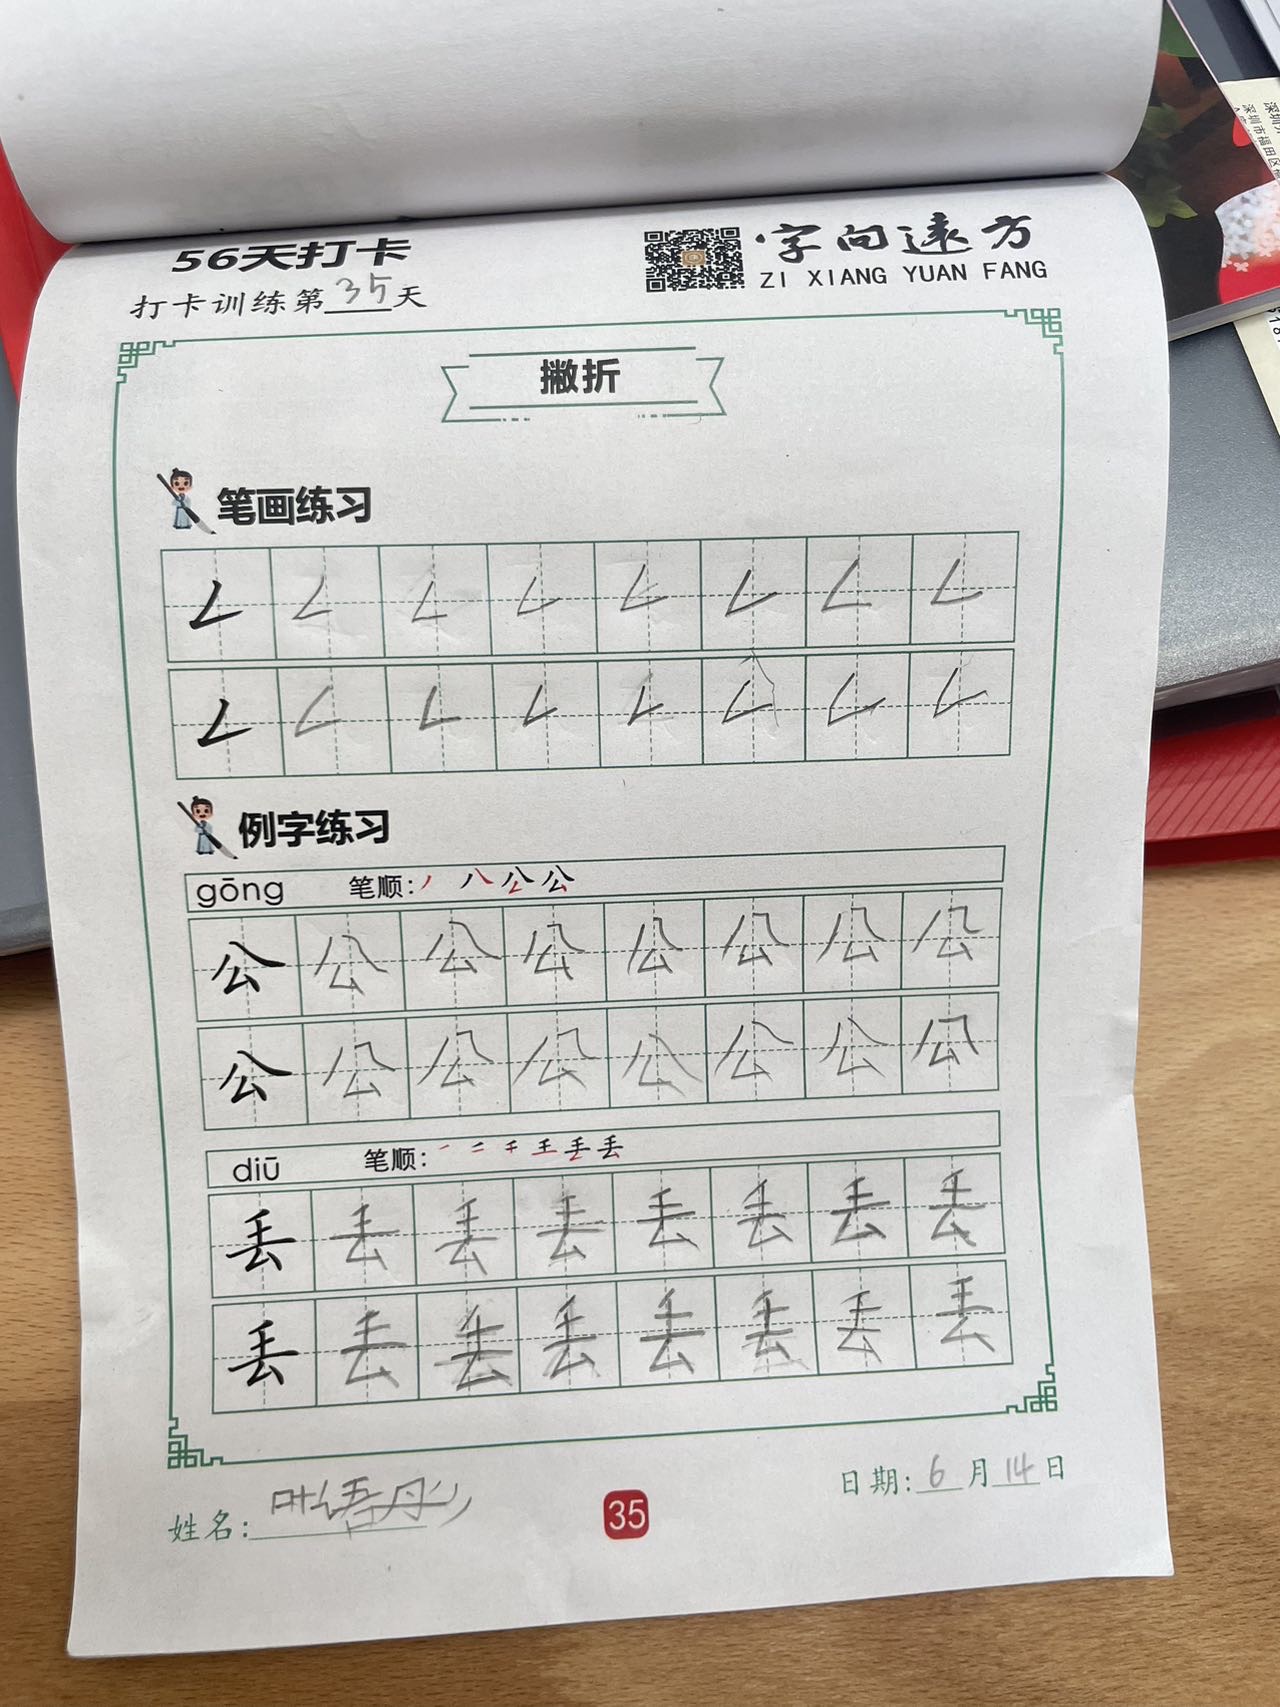 56天打卡
字向远方
ZI XIANG YUAN FANG
打卡训练第35天
撇折
笔画练习
例字练习
gōng 笔顺: 公
公 公 公 公 公 公 公 公
公 公 公 公 公 公 公 公
diū 笔顺: 一 二 千 王 丢 丢
丢 丢 丢 丢 丢 丢 丢 丢
丢 丢 丢 丢 丢 丢 丢 丢
日期:6月14日
姓名:叶语彤
35